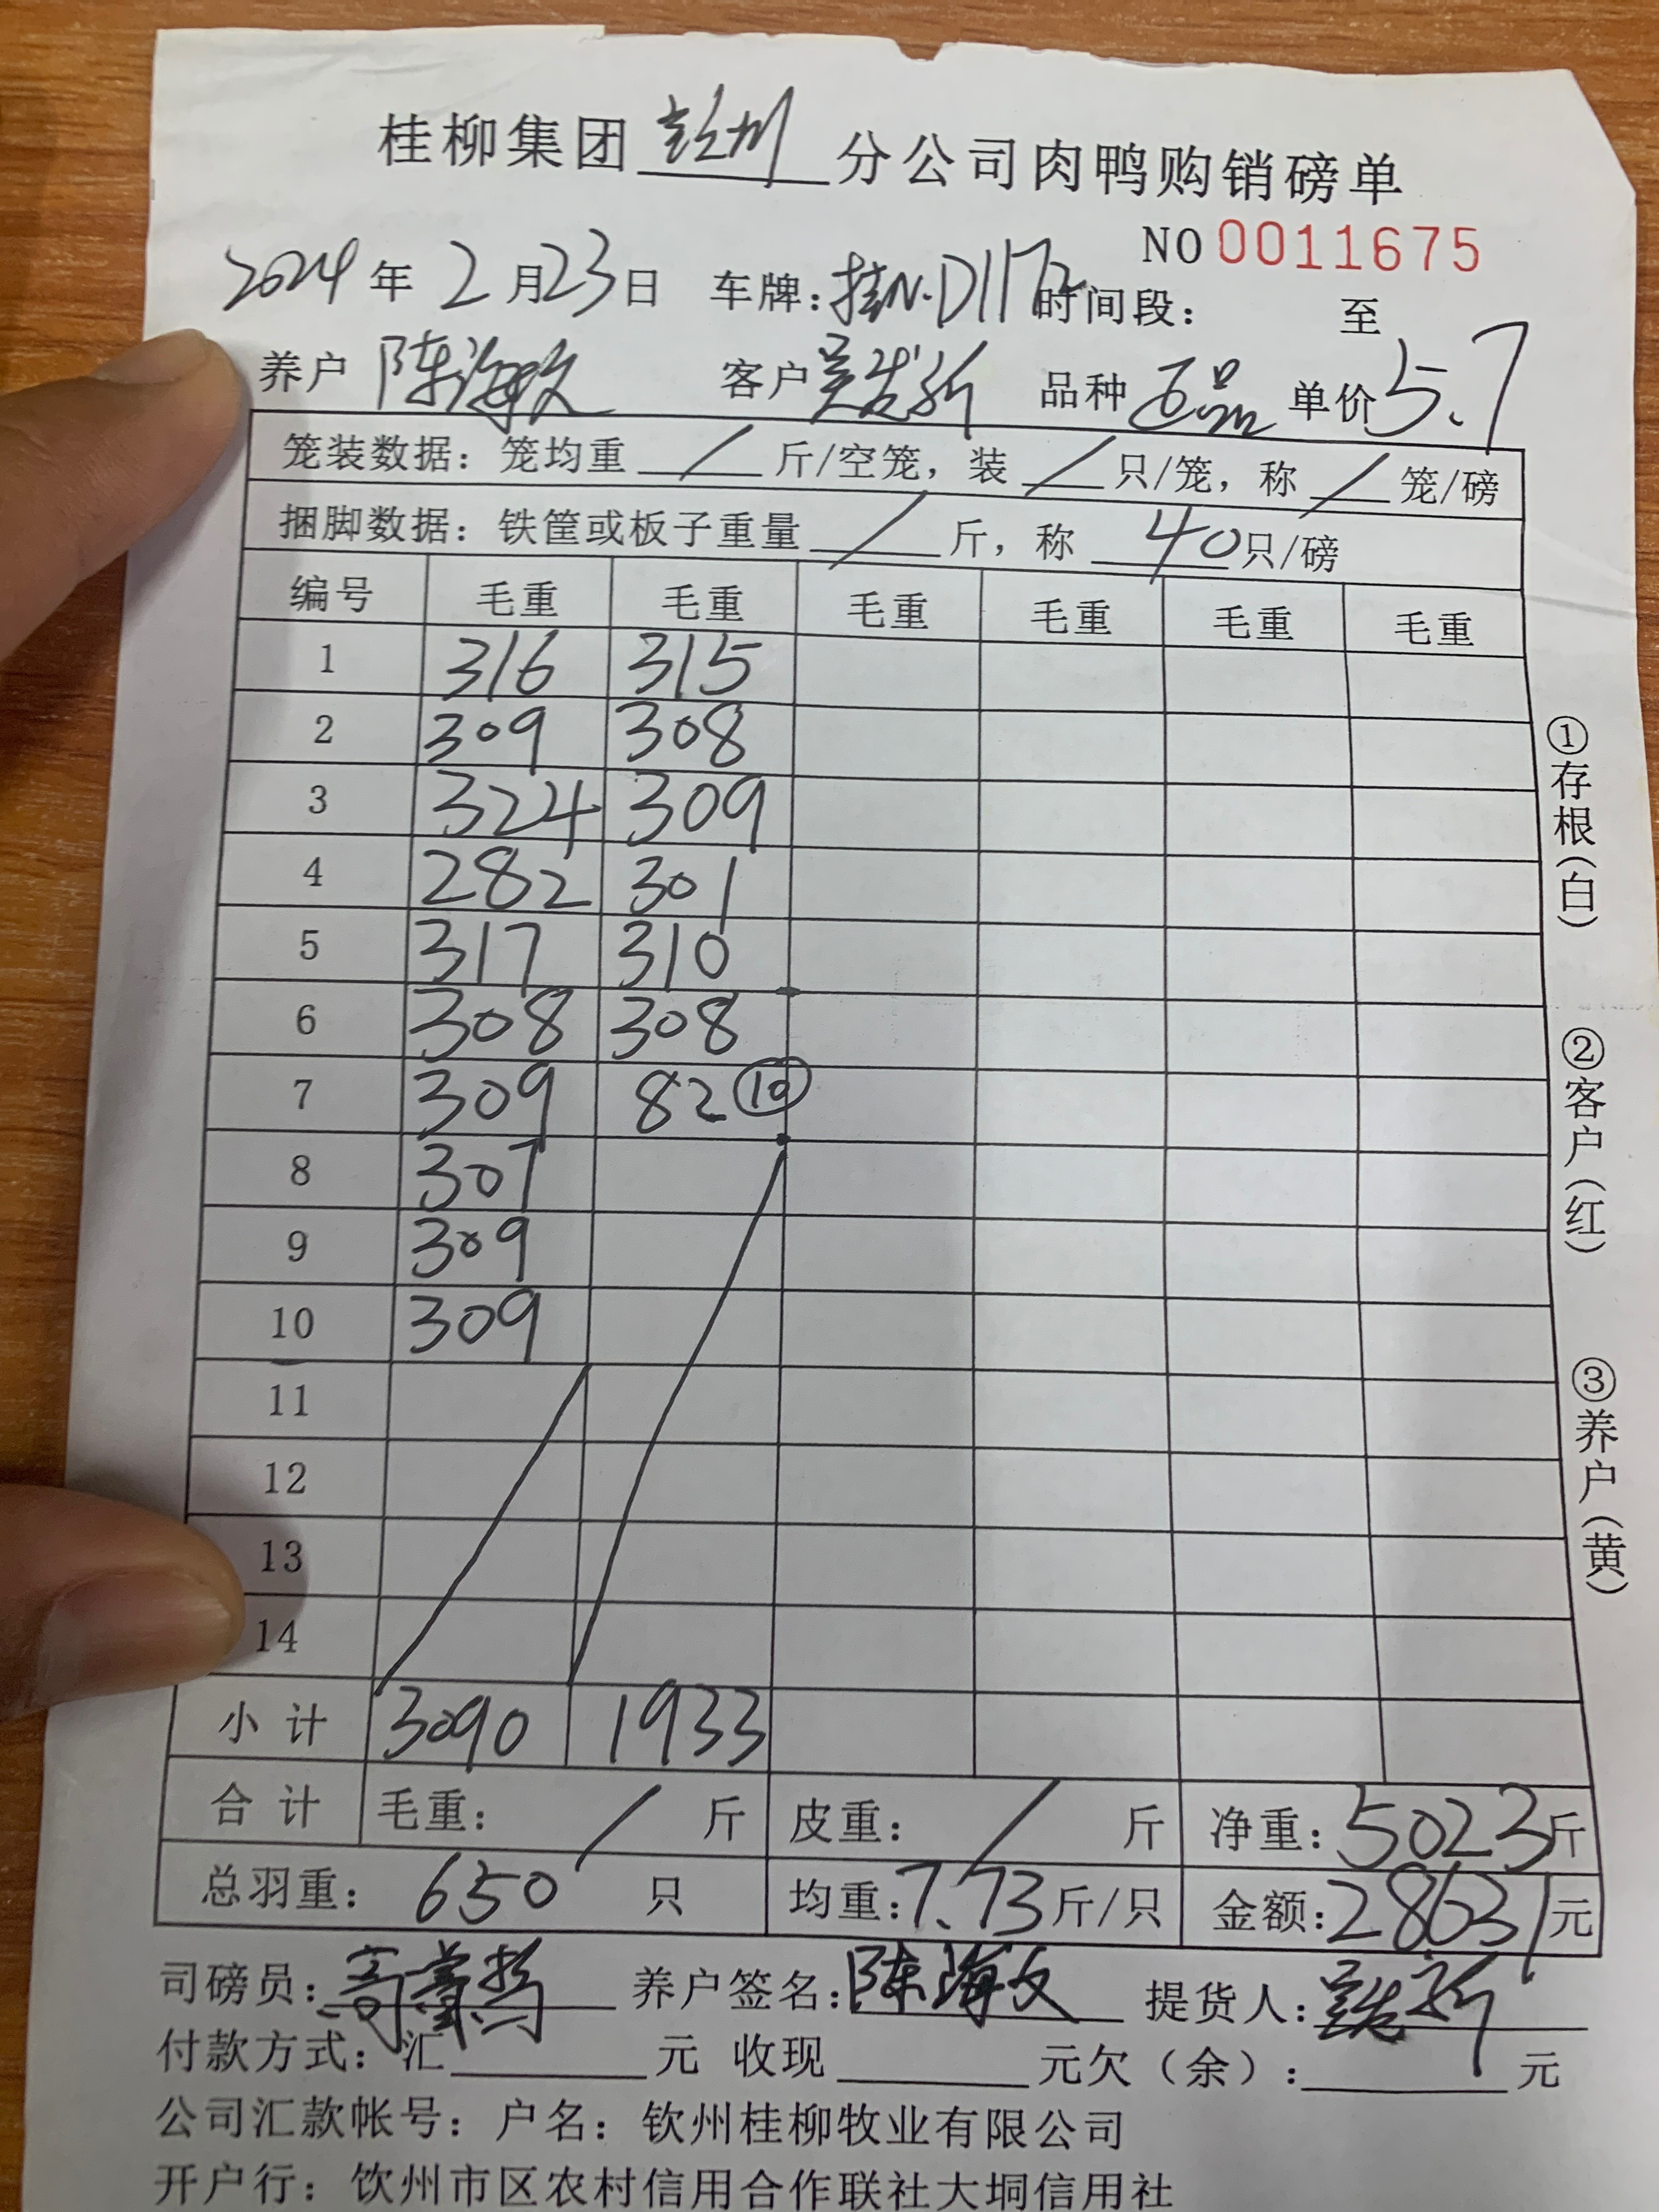 桂柳集团 彭州 分公司肉鸭购销磅单
NO 0011675
2024 年 2 月 23 日 车牌：桂N.D1172 时间段： 至
养户 陈海文 客户 品种 正品 单价 5.7
笼装数据：笼均重 / 斤/空笼，装 / 只/笼，称 / 笼/磅
捆脚数据：铁筐或板子重量 / 斤，称 40 只/磅
编号 毛重 毛重 毛重 毛重 毛重 毛重
1 316 315
2 309 308
3 324 309
4 282 301
5 317 310
6 308 308
7 309 82 ⑩
8 307
9 309
10 309
11
12
13
14
小计 3090 1933
合计 毛重： / 斤 皮重： / 斤 净重：5023斤
总羽重： 650 只 均重：7.73斤/只 金额：28631元
司磅员： 养户签名：陈海文 提货人：
付款方式：汇 元 收现 元欠（余）： 元
公司汇款帐号：户名：钦州桂柳牧业有限公司
开户行：钦州市区农村信用合作联社大垌信用社
①存根（白）
②客户（红）
③养户（黄）